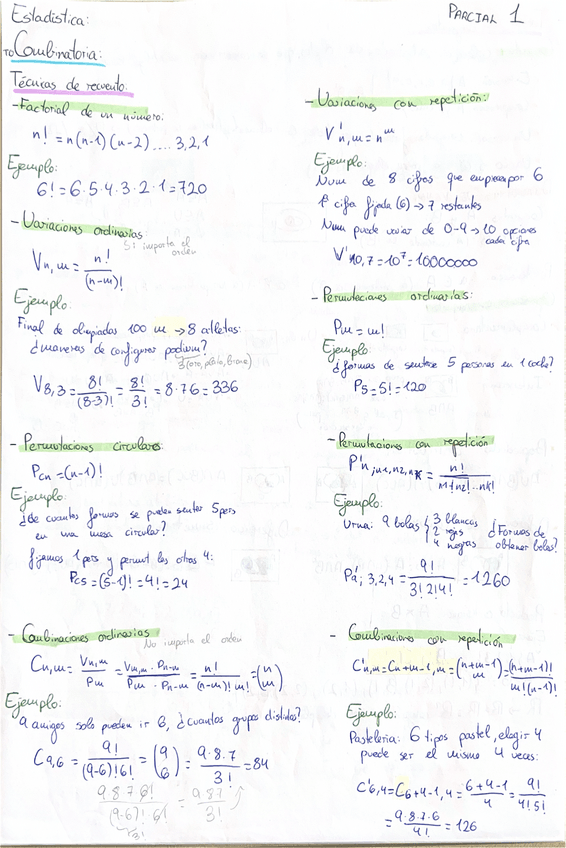 Estadística:
PARCIAL 1
TO Combinatoria:
Técnicas de recuento.
- Factorial de un número:
n! = n(n-1)(n-2) .... 3,2,1
Ejemplo:
6! = 6·5·4·3·2·1 = 720
- Variaciones ordinarias
Si importa el orden
Vn,m = n!/(n-m)!
Ejemplo:
Final de olimpiadas 100 m → 8 atletas:
¿maneras de configurar podium?
3 (oro, plata, bronce)
V8,3 = 8!/(8-3)! = 8!/3! = 8·7·6 = 336
- Permutaciones circulares:
Pcn = (n-1)!
Ejemplo:
¿de cuantas formas se pueden sentar 5 pers
en una mesa circular?
fijamos 1 pers y permut las otras 4:
Pc5 = (5-1)! = 4! = 24
- Combinaciones ordinarias
No importa el orden
Cn,m = Vn,m/Pm = Vn,m · Pn-m/Pm · Pn-m = n!/(n-m)! m! = (n m)
Ejemplo:
9 amigos solo pueden ir 6, ¿cuantos grupos distintos?
C9,6 = 9!/(9-6)!6! = (9 6) = 9·8·7/3! = 84
9 8 7 6!/(9-6)!·6! = 9 8 7/3!
3!
- Variaciones con repetición:
V'n,m = n^m
Ejemplo:
Num de 8 cifras que empiecen por 6
1ª cifra fijada (6) → 7 restantes
Num puede variar de 0-9 → 10 opciones
cada cifra
V'10,7 = 10^7 = 10000000
- Permutaciones ordinarias:
Pm = m!
Ejemplo:
¿formas de sentarse 5 personas en 1 coche?
P5 = 5! = 120
- Permutaciones con repetición
P'n; n1, n2, nk = n!/n1! n2!... nk!
Ejemplo:
Urna: 9 bolas { 3 blancas
2 rojas
4 negras
¿Formas de
obtener bolas?
P9; 3,2,4 = 9!/3! 2! 4! = 1260
- Combinaciones con repetición
C'n,m = Cn+m-1, m = (n+m-1 m) = (n+m-1)!/m!(n-1)!
Ejemplo:
Pasteleria: 6 tipos pastel, elegir 4
puede ser el mismo 4 veces:
C'6,4 = C6+4-1, 4 = 6+4-1/4 = 9!/4! 5!
= 9·8·7·6/4! = 126